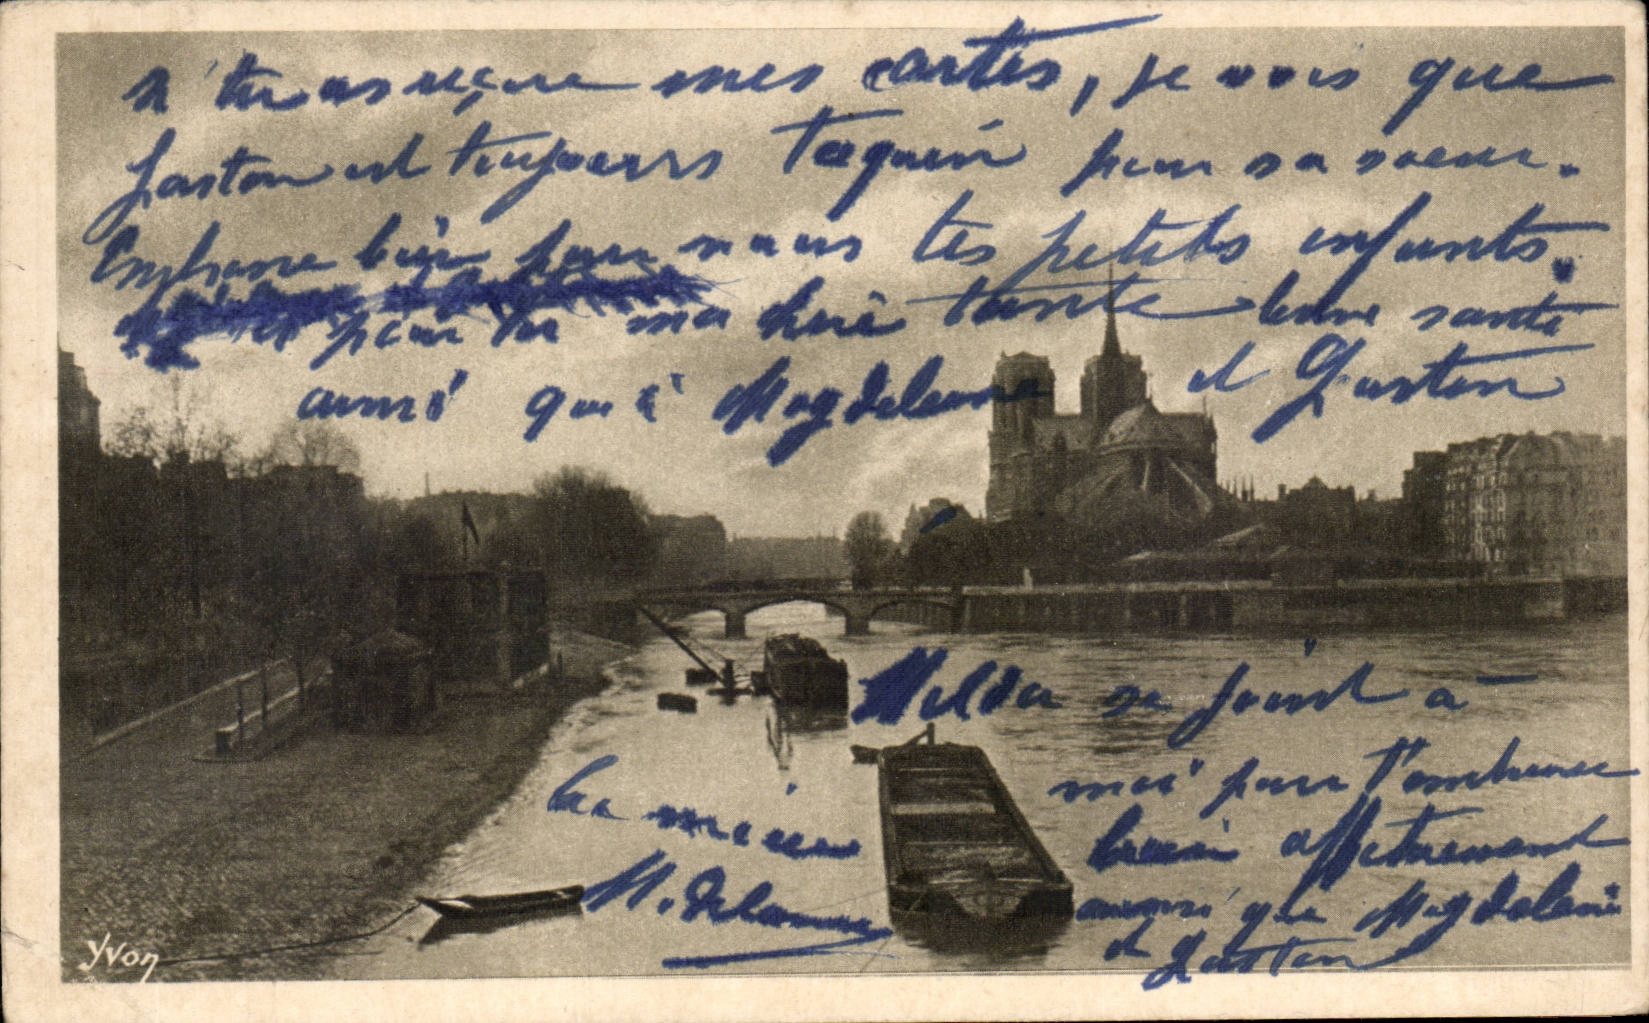 si tu as reçue mes cartes, je vois que
Gaston est toujours taquin pour sa soeur.
Embrasse bien pour nous tes petits enfants.
et pour toi ma chère tante bonne santé
ainsi qu'à Magdeleine et Gaston
Melda se joint à
moi pour t'embrasser
bien affectueusement
ainsi que Magdeleine
et Gaston
ta nièce
M. Delaunne
Yvon